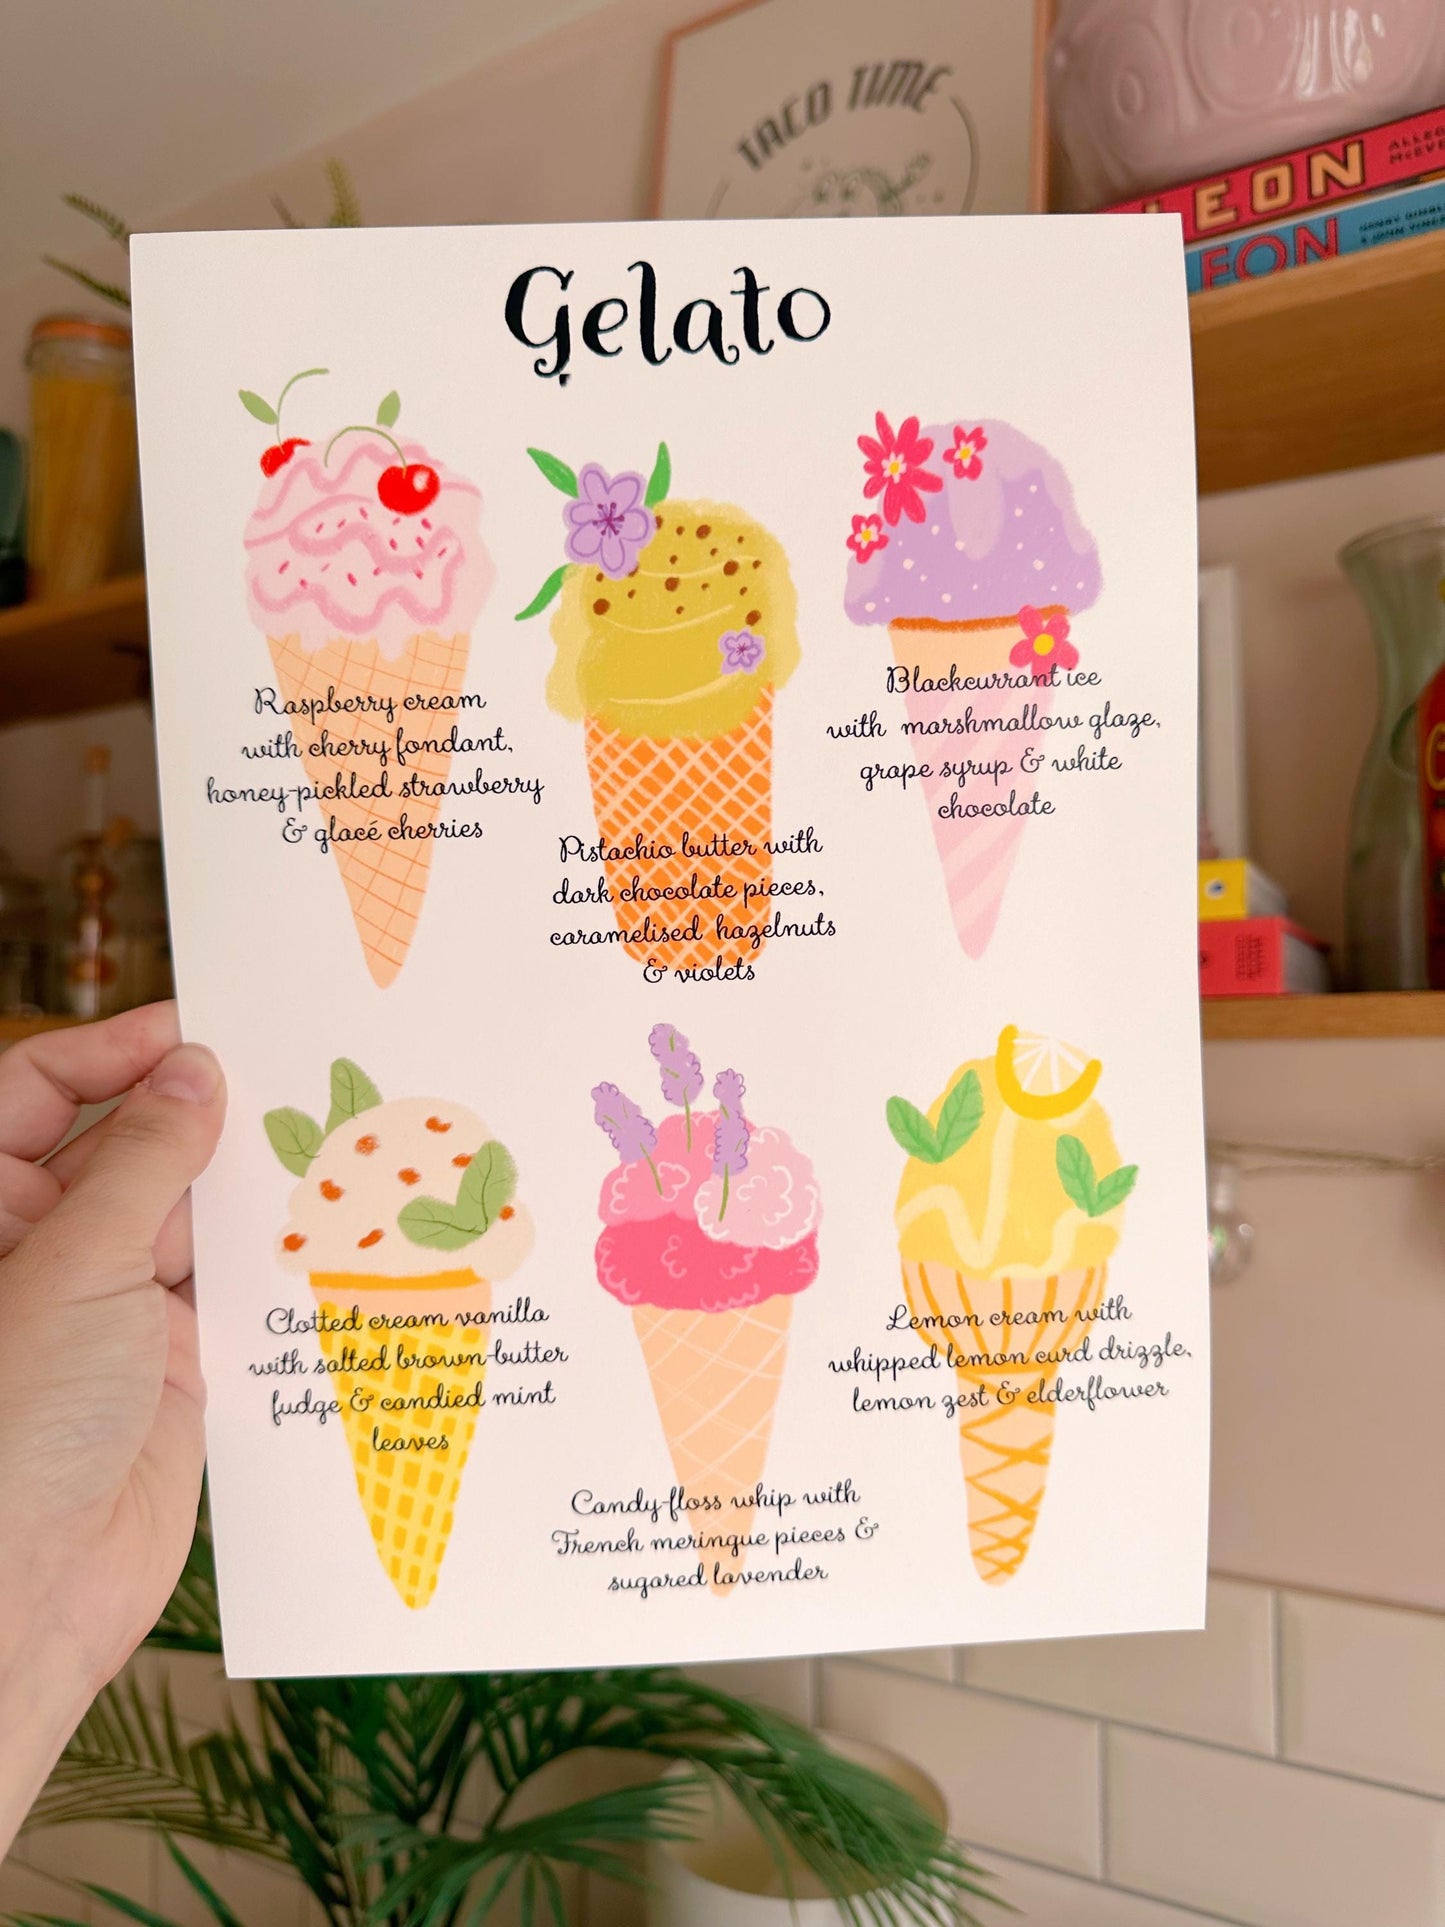 TACO TIME
LEON
ALLEG
McEVE
LEON
HENRY DIMBL
& JOHN VINCE
Gelato
Raspberry cream
with cherry fondant,
honey-pickled strawberry
& glacé cherries
Pistachio butter with
dark chocolate pieces,
caramelised hazelnuts
& violets
Blackcurrant ice
with marshmallow glaze,
grape syrup & white
chocolate
Clotted cream vanilla
with salted brown-butter
fudge & candied mint
leaves
Candy-floss whip with
French meringue pieces &
sugared lavender
Lemon cream with
whipped lemon curd drizzle,
lemon zest & elderflower